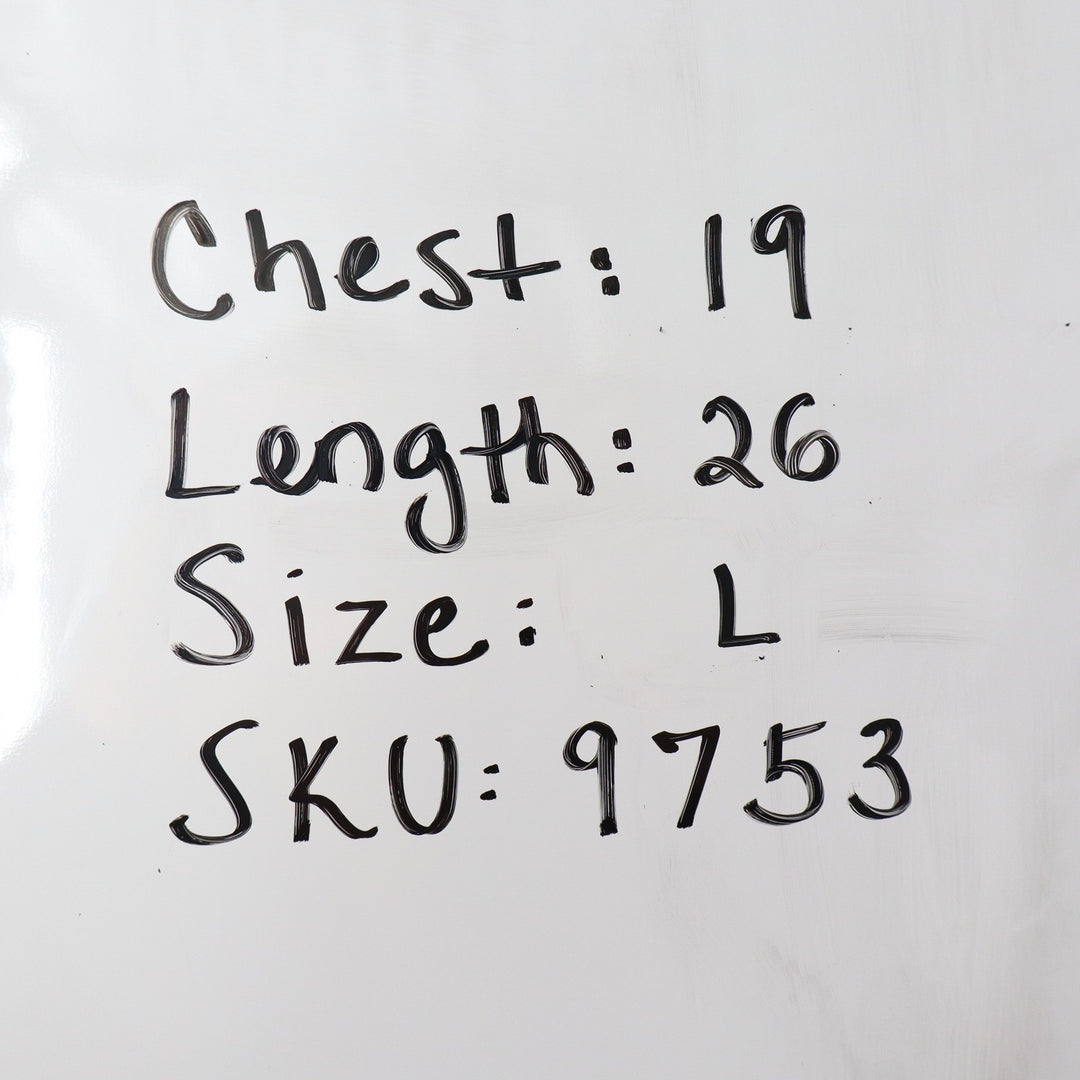 Chest: 19
Length: 26
Size: L
SKU: 9753